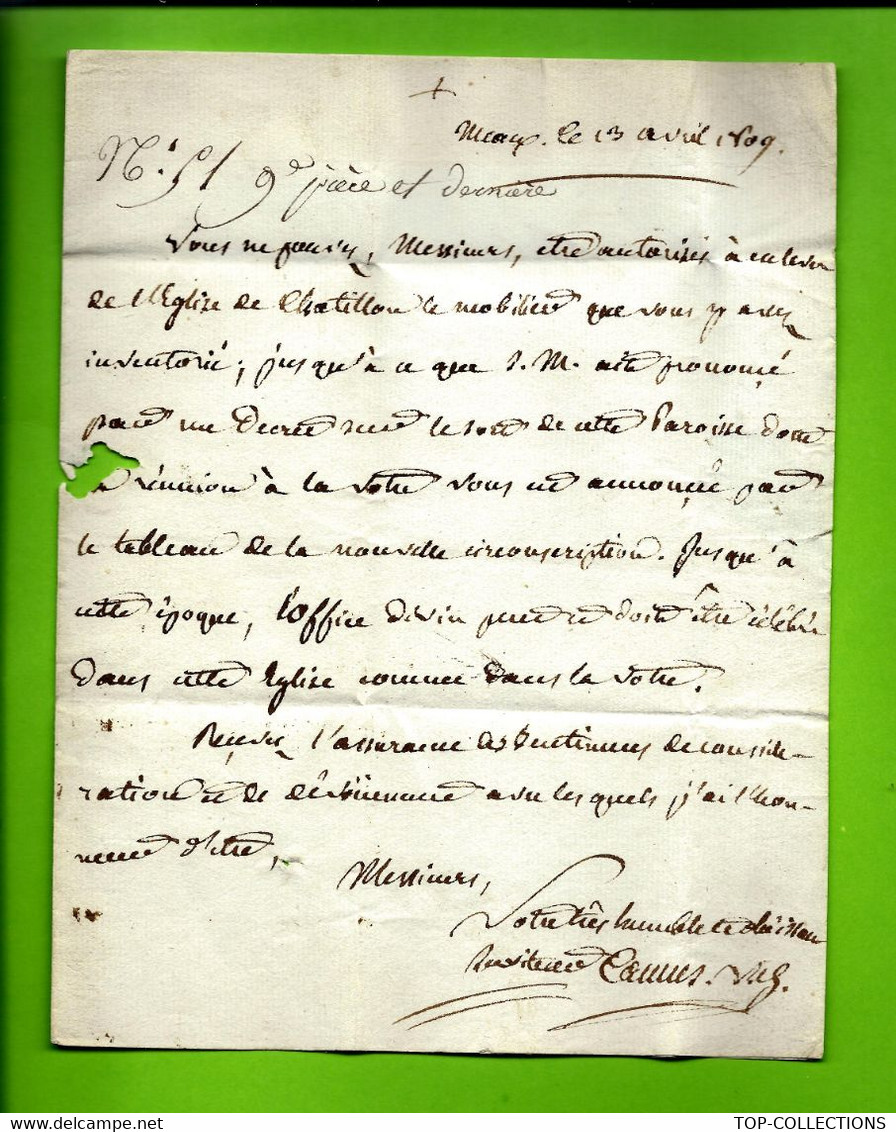 +
Meaux. le 13 avril 1809.
N.° 51 9.e pièce et dernière
Vous ne pouvez, Messieurs, être autorisés à enlever
de l'Eglise de Chatillon le mobilier que vous y avez
inventorié, jusqu'à ce que S. M. ait prononcé
par un Decret sur le sort de cette Paroisse dont
la réunion à la votre vous est annoncée par
le tableau de la nouvelle circonscription. Jusqu'à
cette époque, l'office divin peut et doit être célébré
dans cette Eglise comme dans la votre.
Recevez l'assurance des sentimens de considé-
ration et de dévouement avec lesquels j'ai l'hon-
neur d'être,
Messieurs,
Votre très humble et obéissant
serviteur
TOP-COLLECTIONS